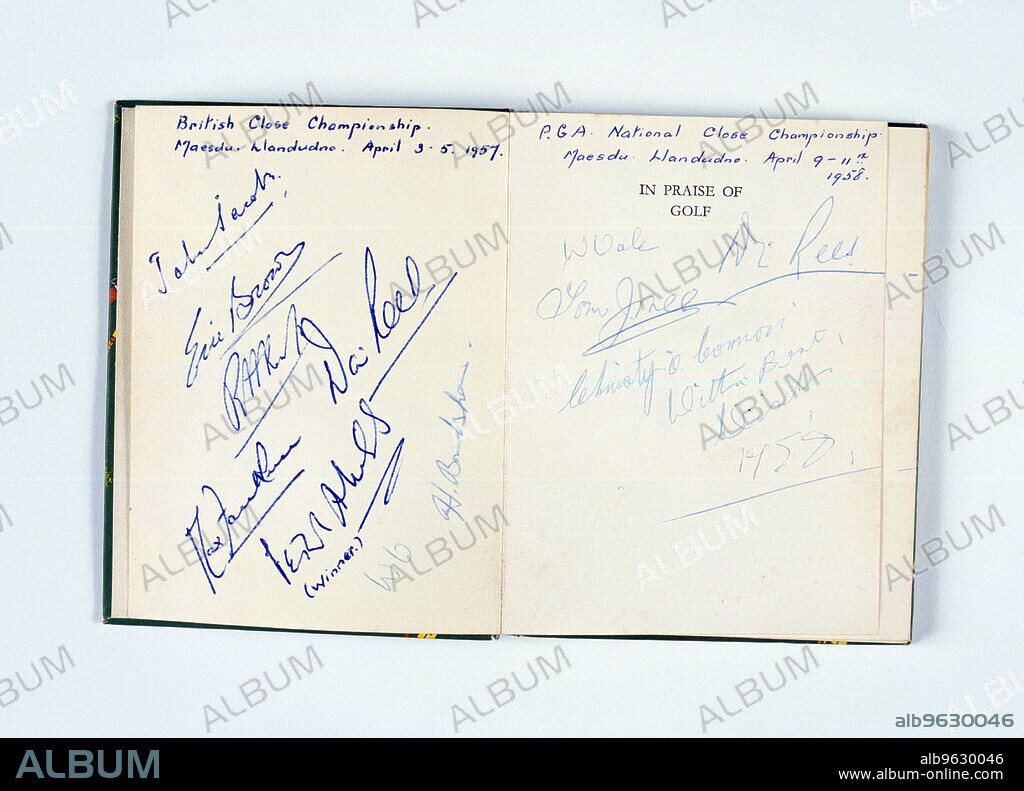 British Close Championship.
Maesdu. Llandudno. April 3-5. 1957.
John Jacobs.
Eric Brown
Dai Rees
Max Faulkner
Peter Alliss
(Winner.)
H. Bradshaw.
P.G.A. National Close Championship.
Maesdu. Llandudno. April 9-11th
1958.
IN PRAISE OF
GOLF
Dai Rees
Christy O'Connor
With Best
Wishes
1958.
ALBUM
alb9630046
ALBUM
alb9630046
www.album-online.com